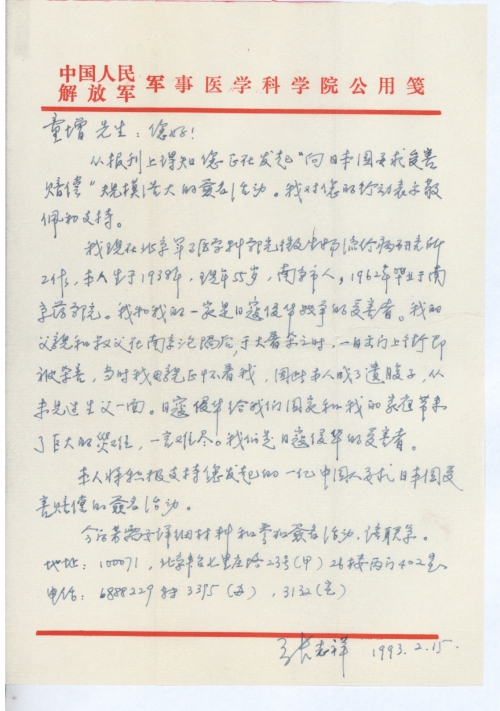 中国人民解放军 军事医学科学院公用笺
童增先生：您好！
从报刊上得知您正在发起"向日本国要求受害
赔偿"规模浩大的签名活动。我对您的行动表示敬
佩和支持。
我现在北京军事医学科学院微生物流行病研究所
工作，本人生于1938年，现年55岁，南京市人，1962年毕业于南
京药学院。我和我的一家是日寇侵华战争的受害者。我的
父亲和叔父在南京沦陷后，于大屠杀之时，一日出门上街即
被杀害，当时我母亲正怀着我，因此本人成了遗腹子，从
未见过生父一面。日寇侵华给我们国家和我的家庭带来
了巨大的灾难，一言难尽。我们是日寇侵华的受害者。
本人将积极支持您发起的一亿中国人要求日本国受
害赔偿的签名活动。
今后若需要详细材料和参加签名活动，请联系。
地址：100071，北京丰台七里庄路23号(甲)26楼两门402号
电话：6888229转3395(办)，3132(宅)
张志祥 1993.2.15.